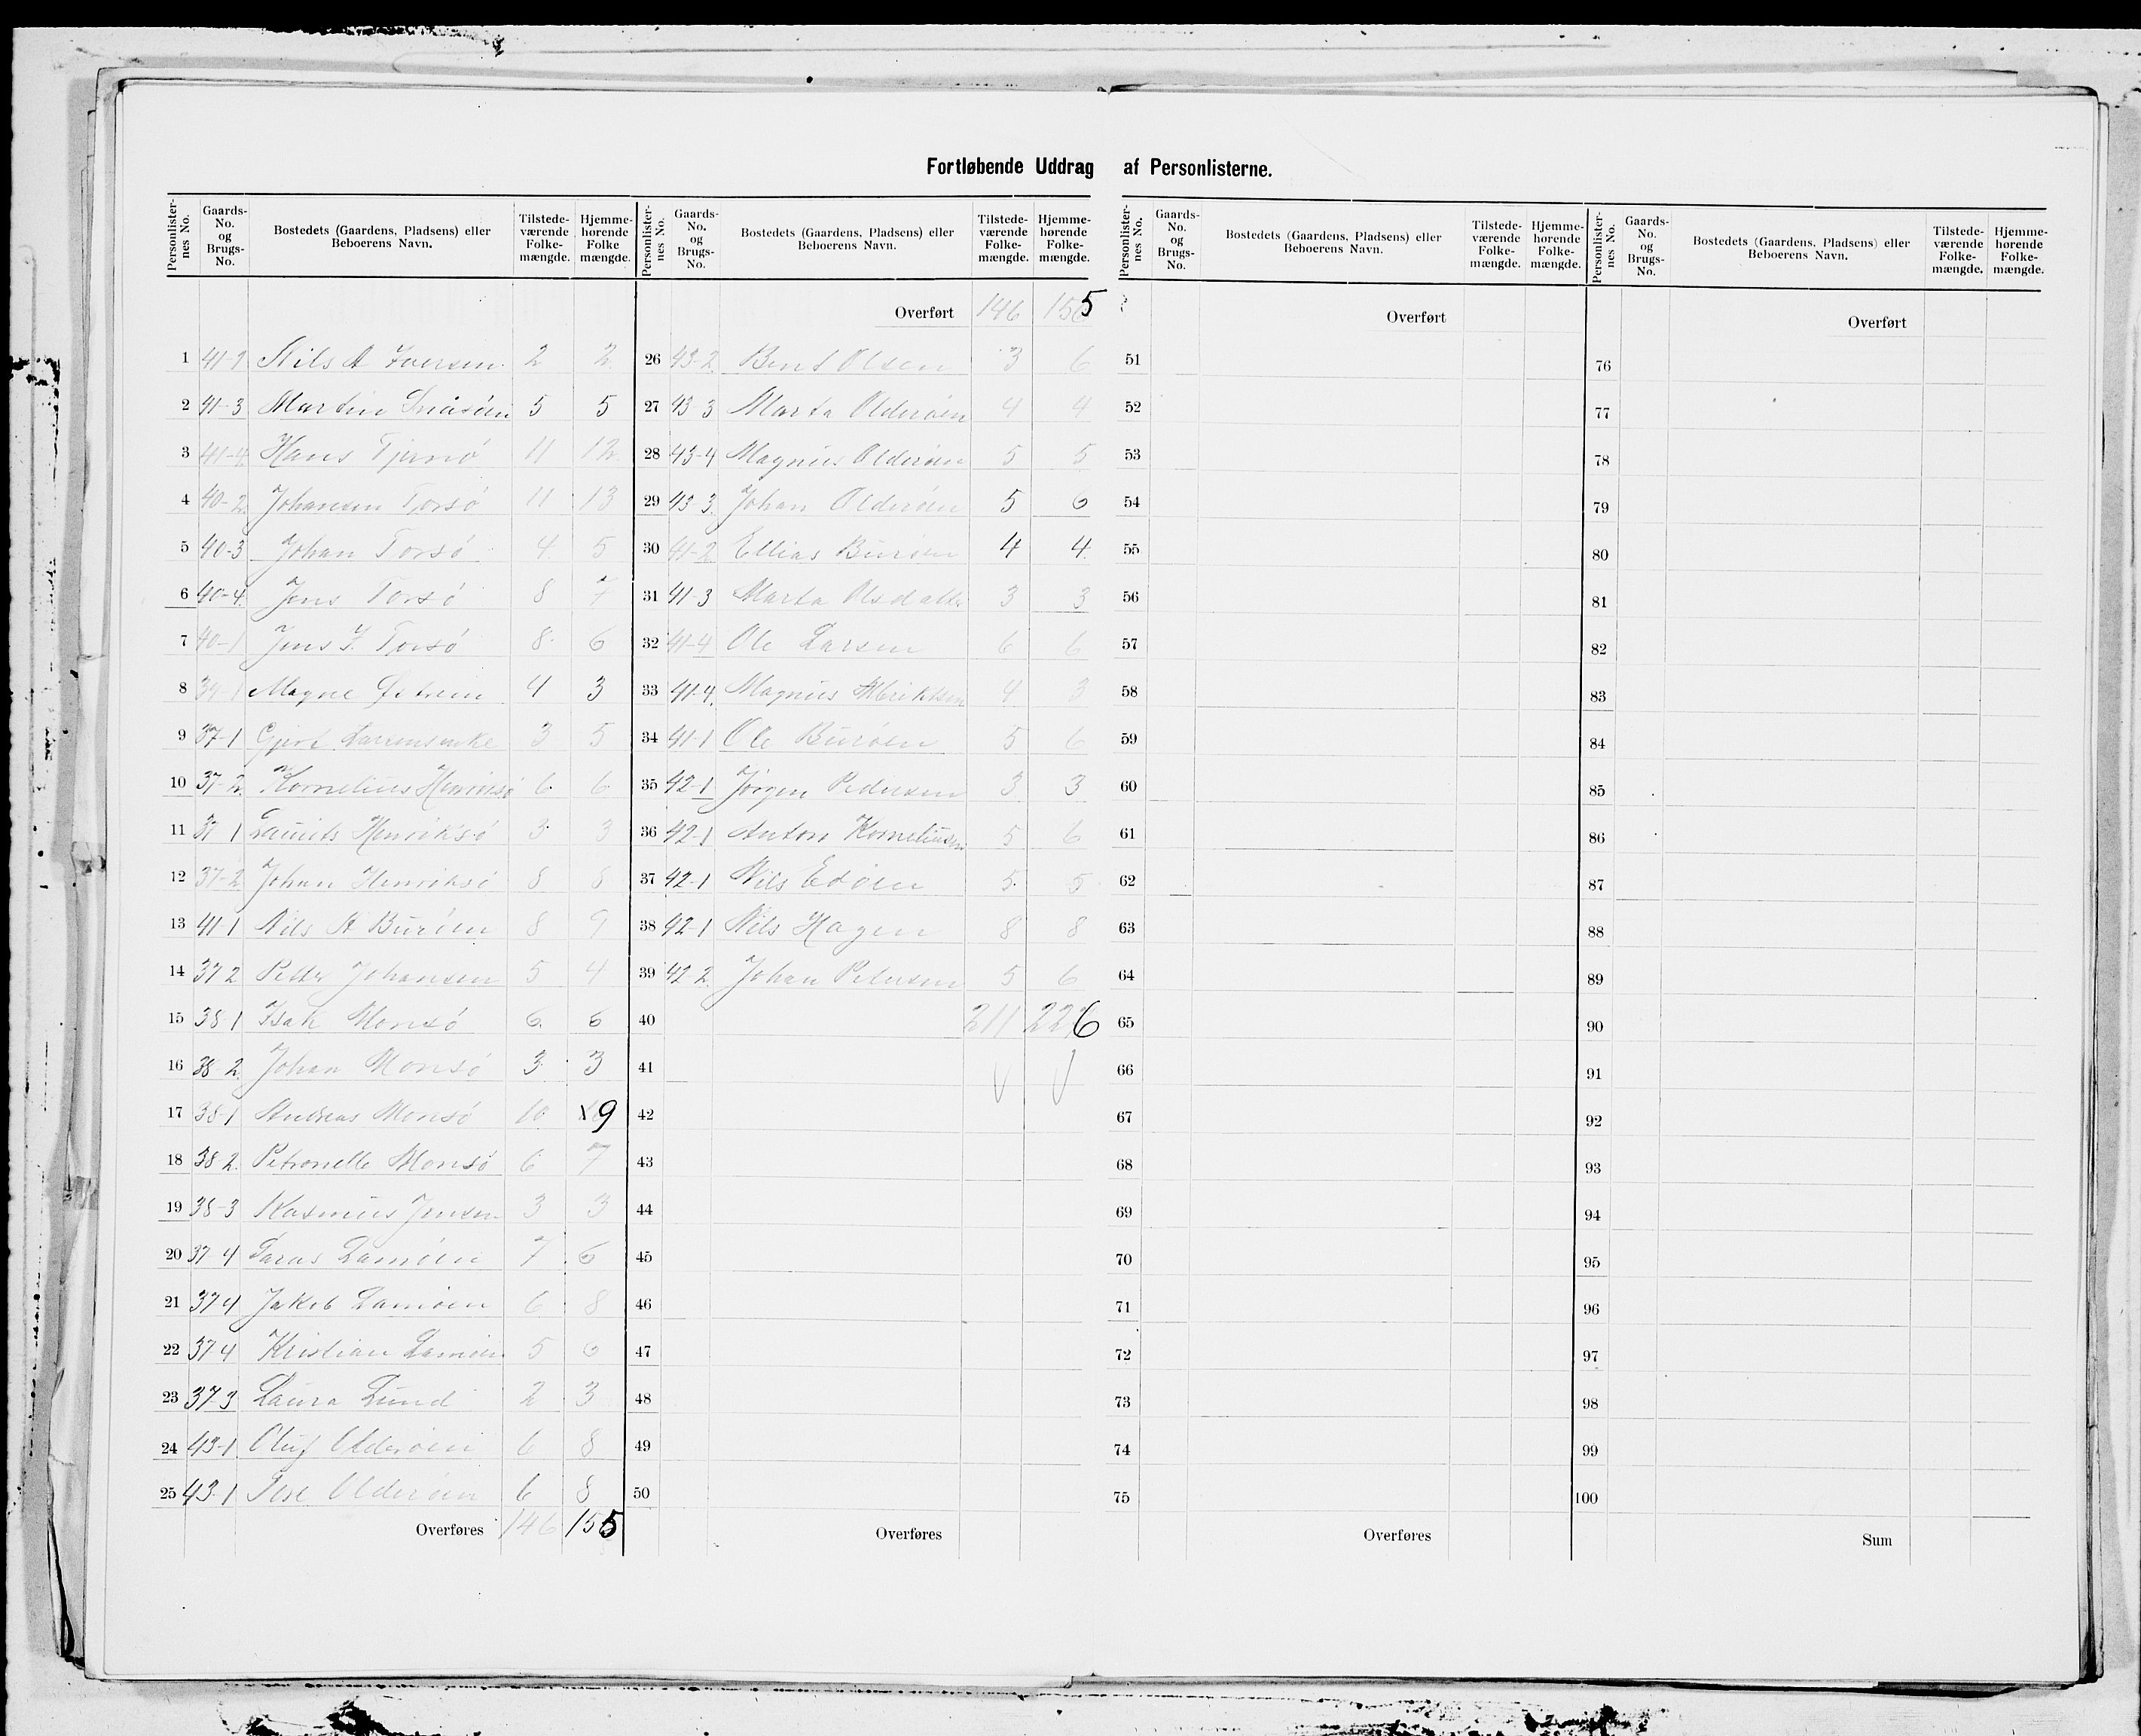 Fortløbende Uddrag af Personlisterne.
Personlisternes No. Gaards-No. og Brugs-No. Bostedets (Gaardens, Pladsens) eller Beboerens Navn. Tilstedeværende Folkemængde. Hjemmehørende Folkemængde.
1 41-1 Nils A Iversen 2 2
2 41-3 Martin 5 5
3 41-4 Hans 11 12
4 40-2 Johansen Torsø 11 13
5 40-3 Johan Torsø 4 5
6 40-4 Jens Torsø 8 7
7 40-1 Jens J. Torsø 8 6
8 39-1 Magne 4 3
9 37-1 3 5
10 37-2 Kornelius Henriksø 6 6
11 37 1 Laurits Henriksø 3 3
12 37-2 Johan Henriksø 8 8
13 41-1 Nils A Burøen 8 9
14 37 2 Peder Johansen 5 4
15 38-1 Isak Monsø 6 6
16 38-2 Johan Monsø 3 3
17 38-1 Andreas Monsø 10 9
18 38-2 Petronelle Monsø 6 7
19 38-3 Rasmus Jensen 3 3
20 37 4 Lamøen 7 6
21 37 4 Jakob Lamøen 6 8
22 37-4 Kristian Lamøen 5 6
23 37-3 Laura Lund 2 3
24 43-1 Oluf Olderøen 6 8
25 43-1 Olderøen 6 8
Overføres 146 155
Personlisternes No. Gaards-No. og Brugs-No. Bostedets (Gaardens, Pladsens) eller Beboerens Navn. Tilstedeværende Folkemængde. Hjemmehørende Folkemængde.
Overført 146 155
26 43-2 Bent Olsen 3 6
27 43 3 Marta Olderøen 4 4
28 43-4 Magnus Olderøen 5 5
29 43-3 Johan Olderøen 5 6
30 41-2 Ellias Burøen 4 4
31 41-3 Marta Olsdatter 3 3
32 41-4 Ole Larsen 6 6
33 41-4 Magnus 4 3
34 41-1 Ole Burøen 5 6
35 42-1 Jørgen Pedersen 3 3
36 42-1 Anton Korneliusen 5 6
37 42-1 Nils Edøen 5 5
38 42-1 Nils Hagen 8 8
39 42-2 Johan Pedersen 5 6
40 211 226
41
42
43
44
45
46
47
48
49
50
Overføres
Personlisternes No. Gaards-No. og Brugs-No. Bostedets (Gaardens, Pladsens) eller Beboerens Navn. Tilstedeværende Folkemængde. Hjemmehørende Folkemængde.
Overført
51
52
53
54
55
56
57
58
59
60
61
62
63
64
65
66
67
68
69
70
71
72
73
74
75
Overføres
Personlisternes No. Gaards-No. og Brugs-No. Bostedets (Gaardens, Pladsens) eller Beboerens Navn. Tilstedeværende Folkemængde. Hjemmehørende Folkemængde.
Overført
76
77
78
79
80
81
82
83
84
85
86
87
88
89
90
91
92
93
94
95
96
97
98
99
100
Sum